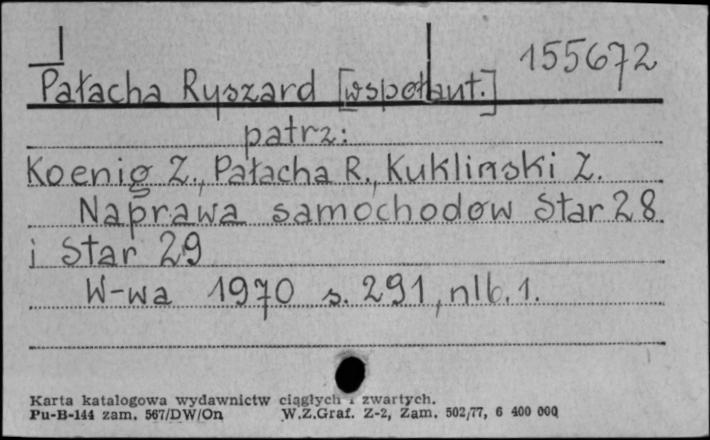 155672
Pałacha Ryszard [współaut.]
patrz:
Koenig Z., Pałacha R., Kukliński Z.
Naprawa samochodów Star 28
i Star 29
W-wa 1970 s. 291, nlb. 1.
Karta katalogowa wydawnictw ciągłych i zwartych.
Pu-B-144 zam. 567/DW/On W.Z.Graf. Z-2, Zam. 502/77, 6 400 000